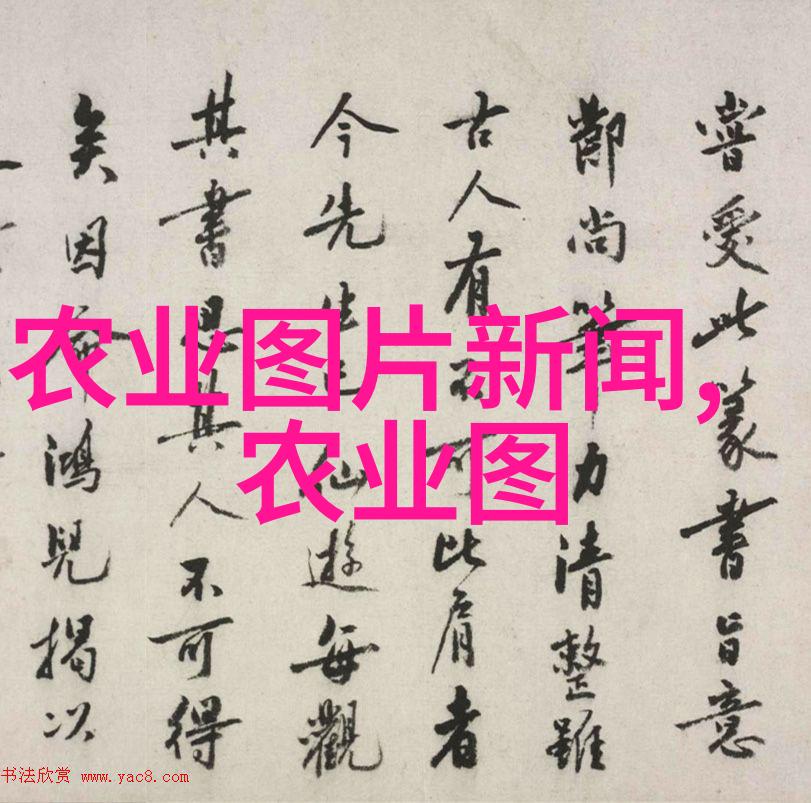 农业图片新闻,
农业图
愛此篆書旨意
尚筆力清整雖
古人有可比肩者
今先生已仙遊每觀
其書思其人不可得
矣因鴻兒揭以
书法欣赏 www.yac8.com